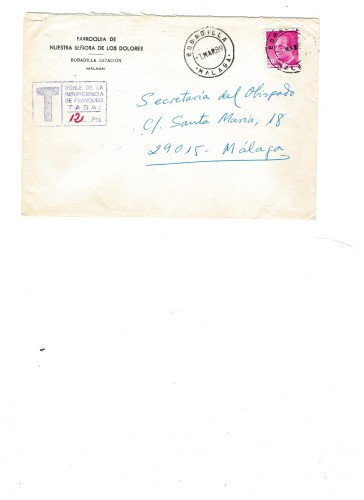 PARROQUIA DE
NUESTRA SEÑORA DE LOS DOLORES
BOBADILLA ESTACIÓN
(MÁLAGA)
BOBADILLA
-7.MAR.89
MALAGA
T
DOBLE DE LA
INSUFICIENCIA
DE FRANQUEO
TASA:
12 Pts.
Secretaria del Obispado
C/. Santa Maria, 18
29015 - Málaga